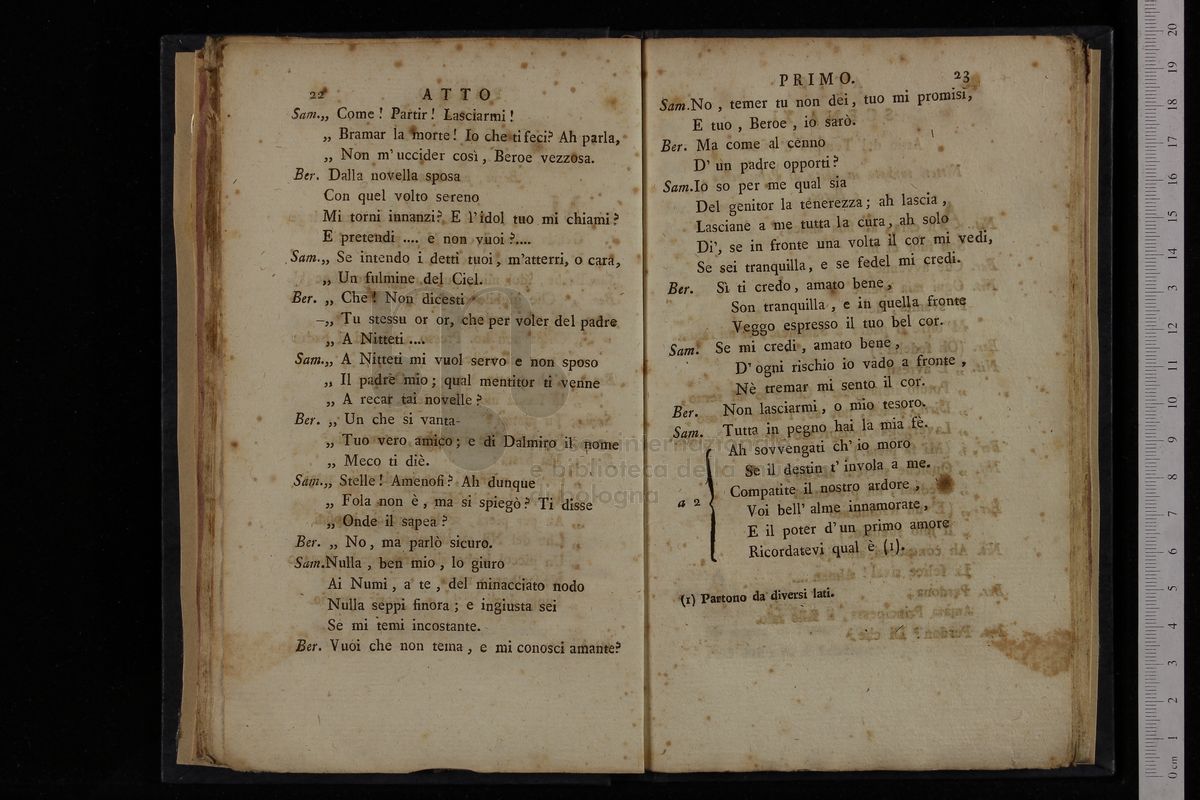 22 ATTO
Sam.„ Come! Partir! Lasciarmi!
„ Bramar la morte! Io che ti feci? Ah parla,
„ Non m'uccider così, Beroe vezzosa.
Ber. Dalla novella sposa
Con quel volto sereno
Mi torni innanzi? E l'idol tuo mi chiami?
E pretendi .... e non vuoi ?....
Sam.„ Se intendo i detti tuoi, m'atterri, o cara,
„ Un fulmine del Ciel.
Ber. „ Che! Non dicesti
–„ Tu stessu or or, che per voler del padre
„ A Nitteti ....
Sam.„ A Nitteti mi vuol servo e non sposo
„ Il padre mio; qual mentitor ti venne
„ A recar tai novelle?
Ber. „ Un che si vanta
„ Tuo vero amico; e di Dalmiro il nome
„ Meco ti diè.
Sam.„ Stelle! Amenofi? Ah dunque
„ Fola non è, ma si spiegò? Ti disse
„ Onde il sapea?
Ber. „ No, ma parlò sicuro.
Sam.Nulla, ben mio, lo giuro
Ai Numi, a te, del minacciato nodo
Nulla seppi finora; e ingiusta sei
Se mi temi incostante.
Ber. Vuoi che non tema, e mi conosci amante?
PRIMO. 23
Sam.No, temer tu non dei, tuo mi promisi,
E tuo, Beroe, io sarò.
Ber. Ma come al cenno
D'un padre opporti?
Sam.Io so per me qual sia
Del genitor la tenerezza; ah lascia,
Lasciane a me tutta la cura, ah solo
Di', se in fronte una volta il cor mi vedi,
Se sei tranquilla, e se fedel mi credi.
Ber. Sì ti credo, amato bene,
Son tranquilla, e in quella fronte
Veggo espresso il tuo bel cor.
Sam. Se mi credi, amato bene,
D'ogni rischio io vado a fronte,
Nè tremar mi sento il cor.
Ber. Non lasciarmi, o mio tesoro.
Sam. Tutta in pegno hai la mia fè.
Ah sovvengati ch'io moro
Se il destin t'invola a me.
Compatite il nostro ardore,
a 2 Voi bell'alme innamorate,
E il poter d'un primo amore
Ricordatevi qual è (1).
(1) Partono da diversi lati.